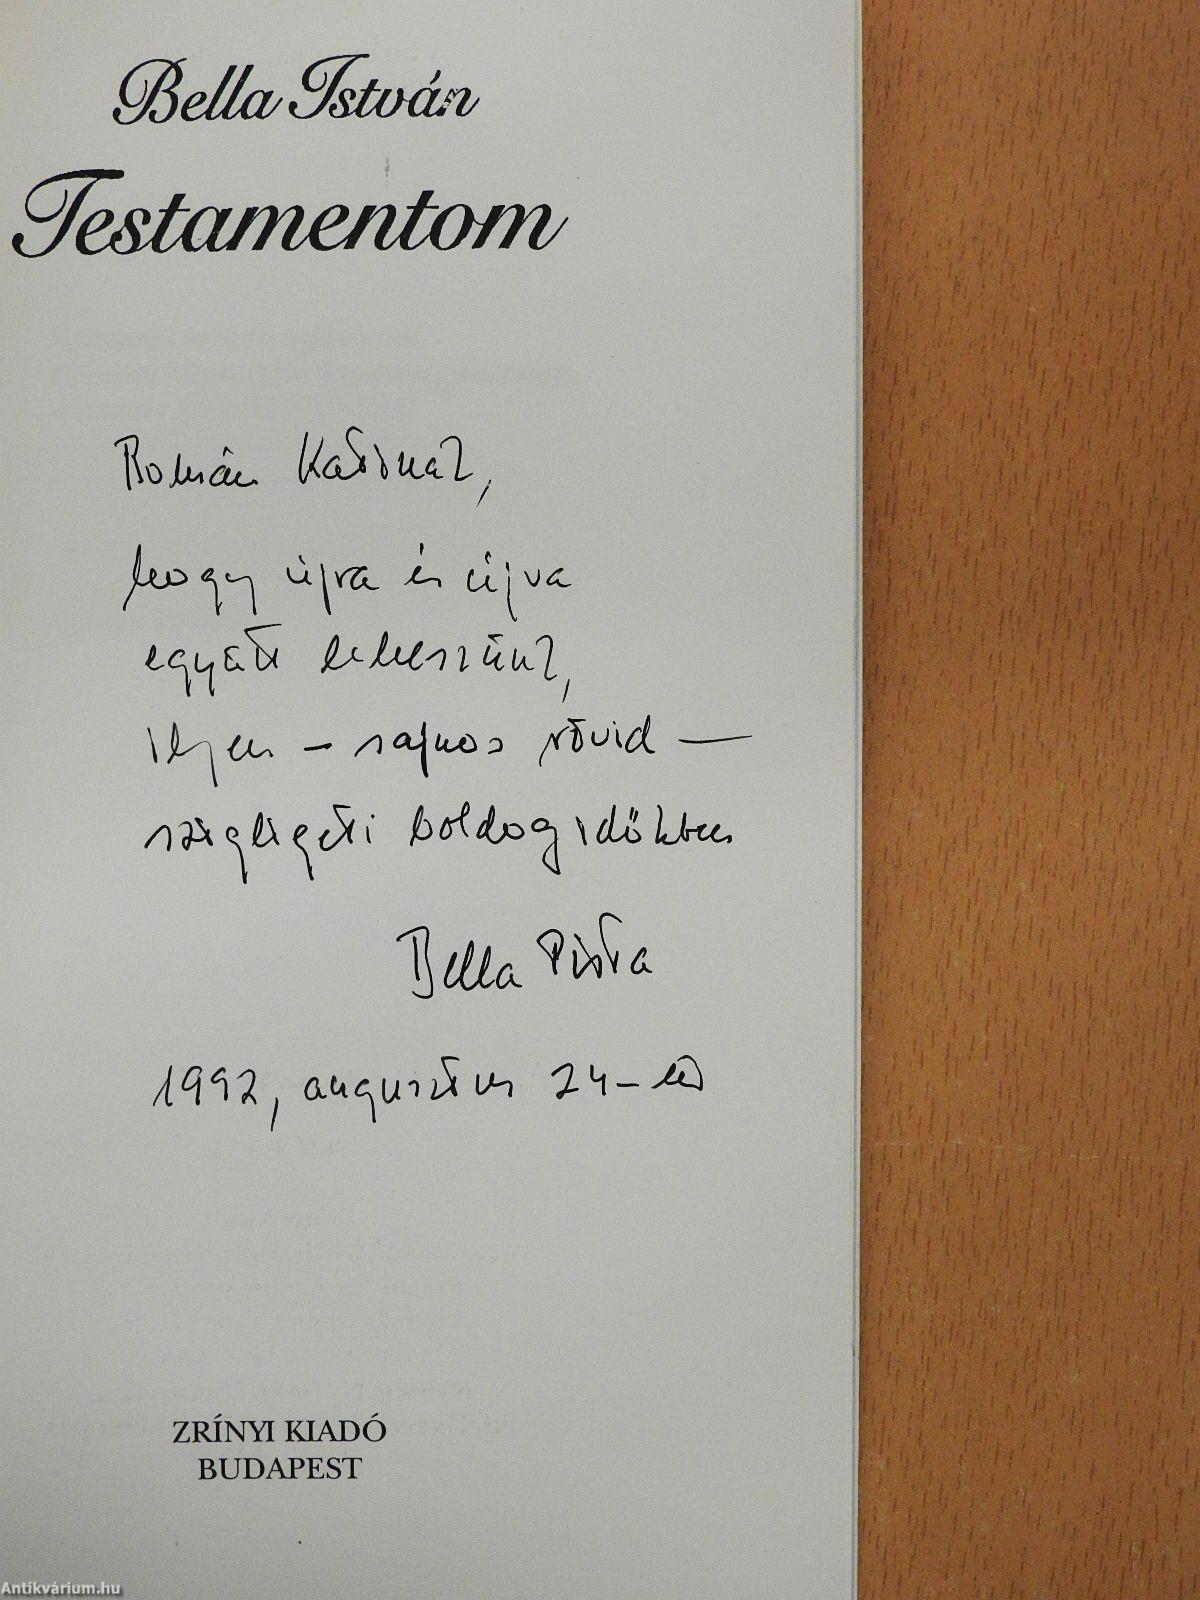 Bella István
Testamentom
Román Katinak,
hogy újra és újra
együtt lehessünk,
ilyen – sajnos rövid –
szigligeti boldog időkben
Bella Pista
1992, augusztus 24-én
ZRÍNYI KIADÓ
BUDAPEST
Antikvárium.hu